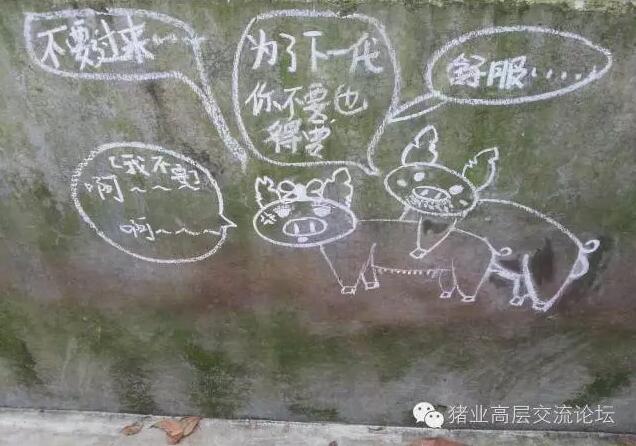 不要过来……
为了下一代
你不要也
得要
舒服……
(我不要!
啊~~~
啊~~~~
猪业高层交流论坛